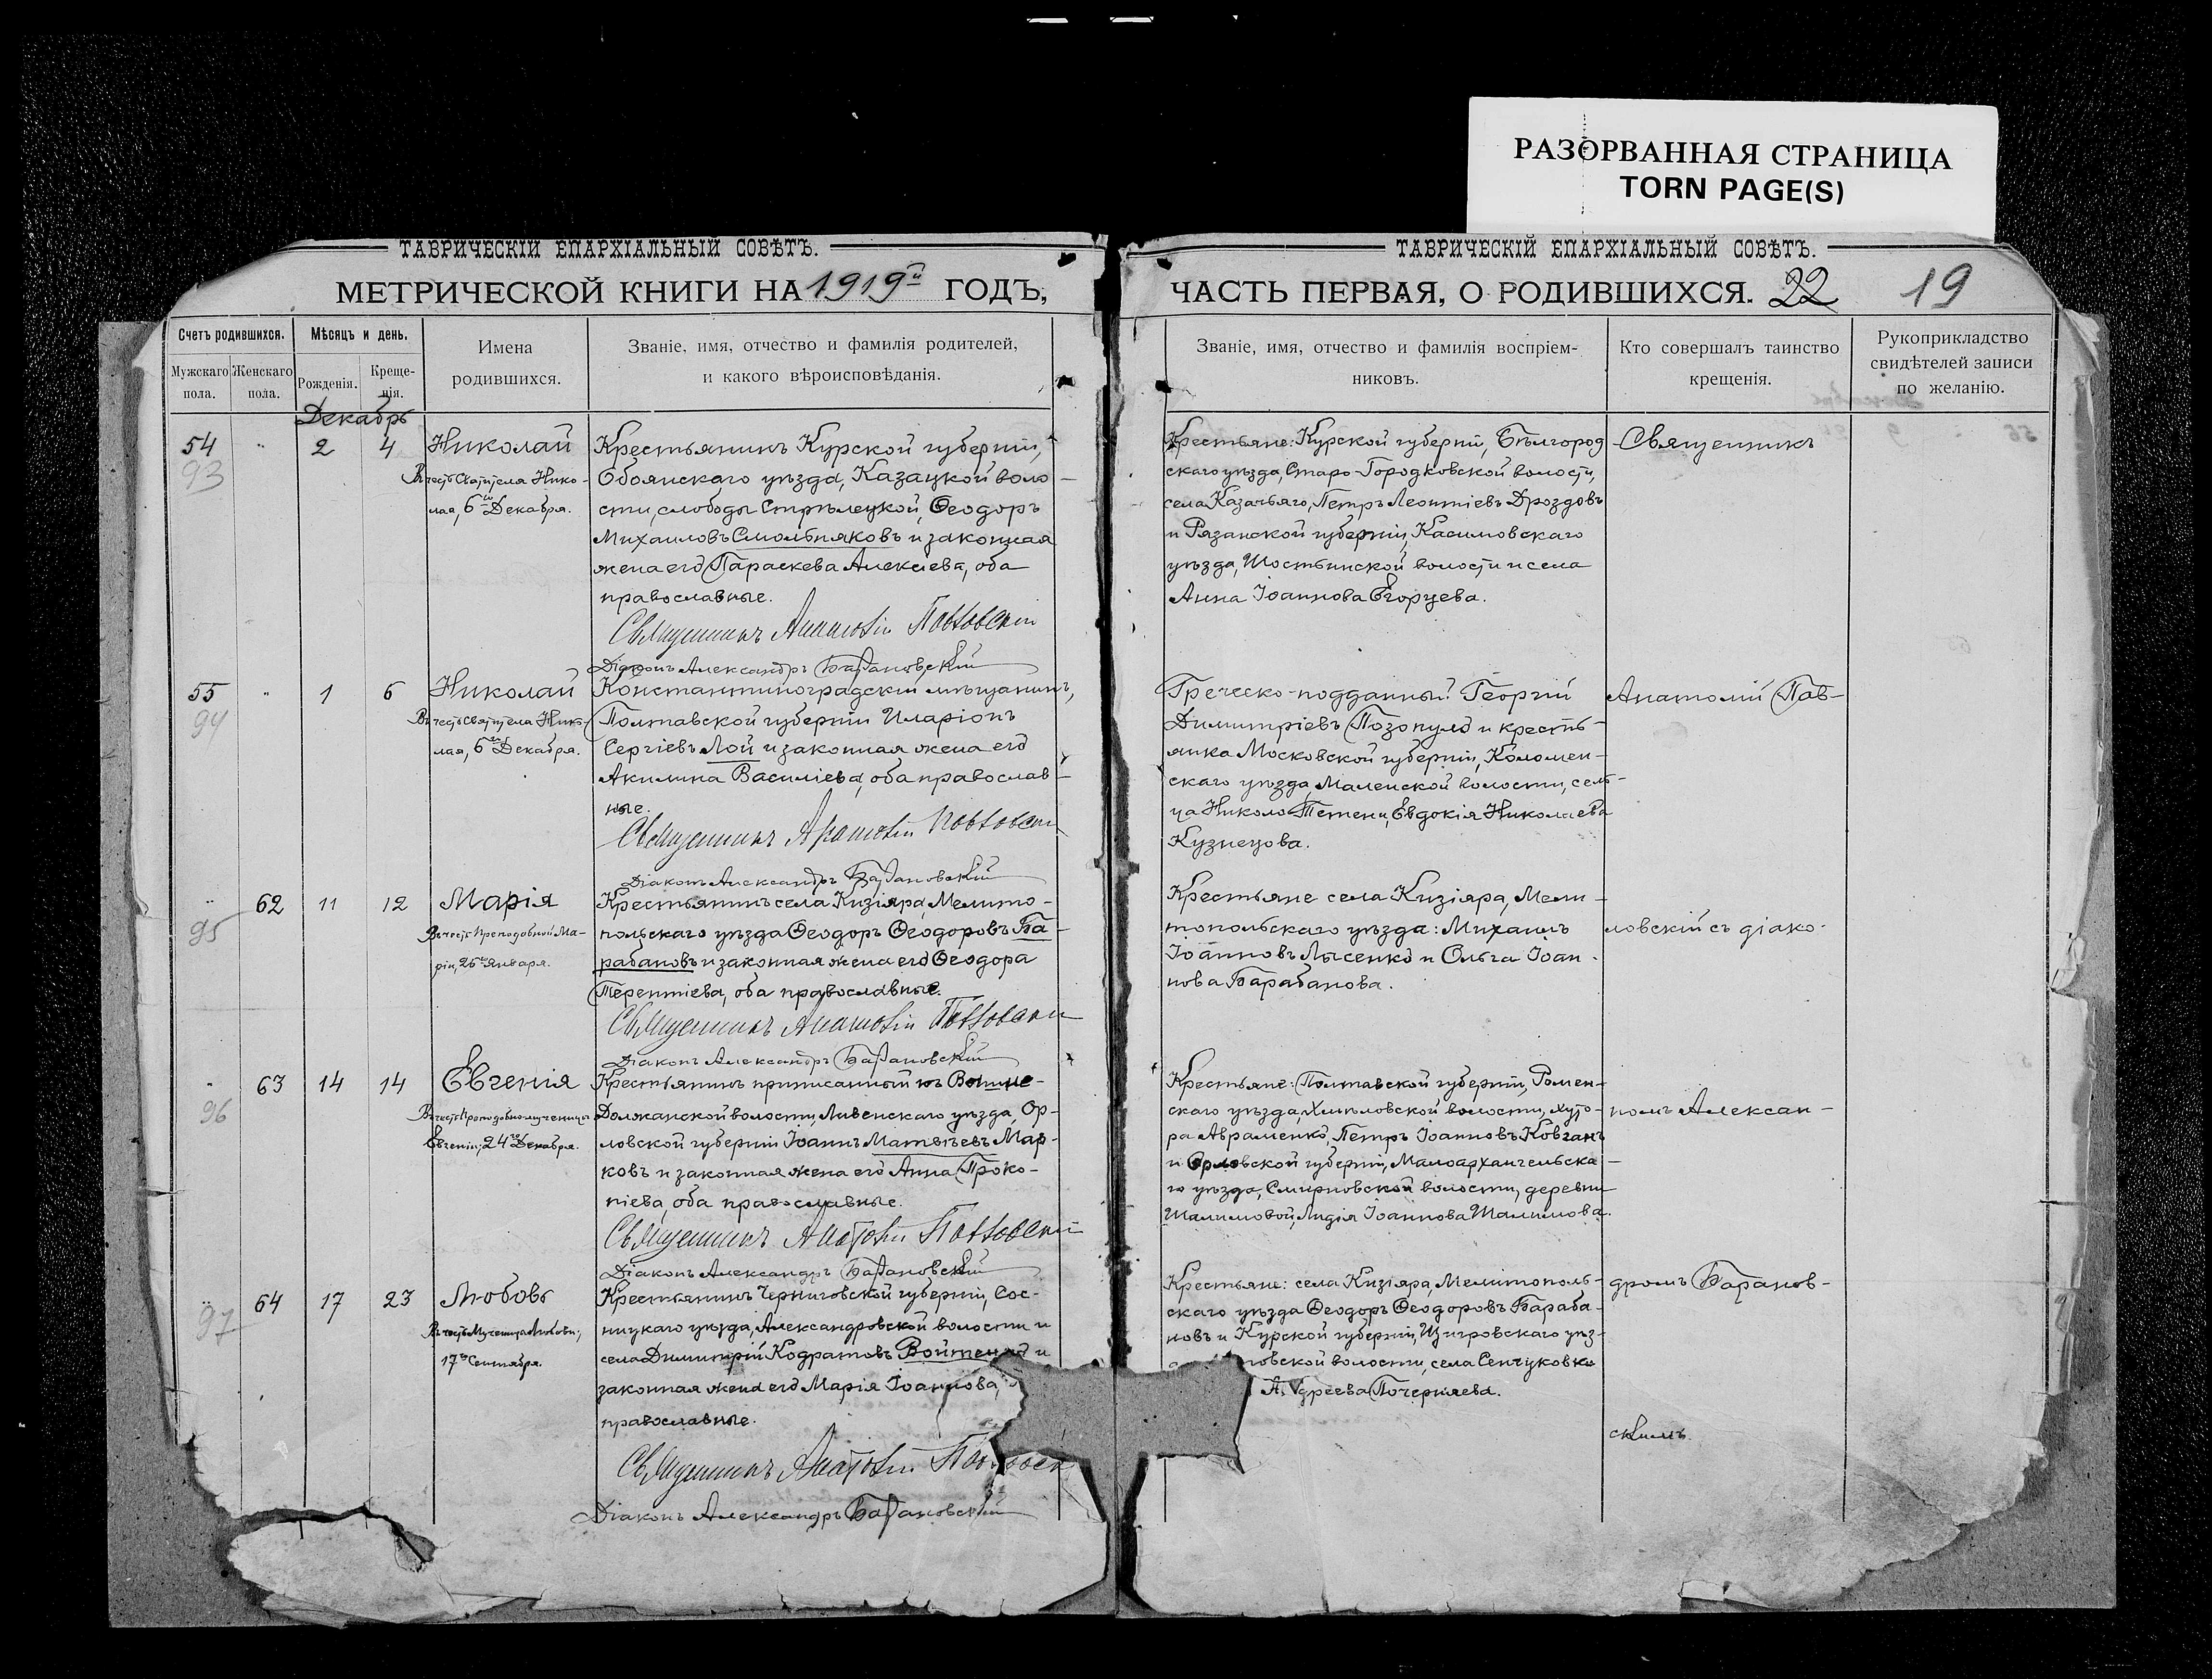 РАЗОРВАННАЯ СТРАНИЦА
TORN PAGE(S)
ТАВРИЧЕСКІЙ ЕПАРХІАЛЬНЫЙ СОВѢТЪ.
МЕТРИЧЕСКОЙ КНИГИ НА 1919й ГОДЪ,
Счетъ родившихся.
Мужскаго пола.
Женскаго пола.
Мѣсяцъ и день.
Рожденія.
Креще-
нія.
Имена
родившихся.
Званіе, имя, отчество и фамилія родителей,
и какого вѣроисповѣданія.
Декабрь
54 " 2 4 Николай
93
Въ честь Святителя Нико-
лая, 6го Декабря.
Крестьянинъ Курской губерніи,
Обоянскаго уѣзда, Казацкой воло-
сти, слободы Стрѣлецкой, Ѳеодоръ
Михаиловъ Смольняковъ и законная
жена его Параскева Алексіева, оба
православные.
Священникъ Анатолій Павловскій
Діаконъ Александръ Барановскій
55 " 1 6 Николай
94
Въ честь Святителя Нико-
лая, 6го Декабря.
Константиноградскій мѣщанинъ,
Полтавской губерніи Иларіонъ
Сергіевъ Лой и законная жена его
Акилина Василіева, оба православ-
ные.
Священникъ Анатолій Павловскій
Діаконъ Александръ Барановскій
" 62 11 12 Марія
95
Въ честь Преподобной Ма-
ріи, 26го Января.
Крестьянинъ села Кизіяра, Мелито-
польскаго уѣзда Ѳеодоръ Ѳеодоровъ Ба-
рабановъ и законная жена его Ѳеодора
Терентіева, оба православные.
Священникъ Анатолій Павловскій
Діаконъ Александръ Барановскій
" 63 14 14 Евгенія
96
Въ честь Преподобномученицы
Евгеніи, 24го Декабря.
Крестьянинъ приписанный къ
Должанской волости, Ливенскаго уѣзда, Ор-
ловской губерніи Іоаннъ Матвѣевъ Мар-
ковъ и законная жена его Анна Проко-
піева, оба православные.
Священникъ Анатолій Павловскій
Діаконъ Александръ Барановскій
" 64 17 23 Любовь
97
Въ честь Мученицы Любови,
17го Сентября.
Крестьянинъ Черниговской губерніи, Сос-
ницкаго уѣзда, Александровской волости и
села Димитрій Кодратовъ и
законная жена его Марія Іоаннова,
православные.
Священникъ Анатолій
Діаконъ Александръ Барановскій
ТАВРИЧЕСКІЙ ЕПАРХІАЛЬНЫЙ СОВѢТЪ.
ЧАСТЬ ПЕРВАЯ, О РОДИВШИХСЯ. 22 19
Званіе, имя, отчество и фамилія воспріем-
никовъ.
Кто совершалъ таинство
крещенія.
Рукоприкладство
свидѣтелей записи
по желанію.
Крестьяне: Курской губерніи, Бѣлгород
скаго уѣзда, Старо-Городковской волости,
села Казачьяго, Петръ Леонтіевъ Дроздовъ
и Рязанской губерніи, Касимовскаго
уѣзда, Шостьинской волости и села
Анна Іоаннова Егорцева.
Греческо-подданный Георгій
Димитріевъ Позопуло и кресть-
янка Московской губерніи, Коломен-
скаго уѣзда, Маленской волости, сель-
ца Николо Тетени, Евдокія Николаева
Кузнецова.
Крестьяне села Кизіяра, Мели-
топольскаго уѣзда: Михаилъ
Іоанновъ Лысенко и Ольга Іоан-
нова Барабанова.
Крестьяне: Полтавской губерніи, Ромен-
скаго уѣзда, Хмѣловской волости, хуто-
ра Авраменко, Петръ Іоанновъ Ковганъ
и Орловской губерніи, Малоархангельска-
го уѣзда, Смирновской волости, деревни
Шалимовой, Лидія Іоаннова Шалимова.
Крестьяне: села Кизіяра, Мелитополь-
скаго уѣзда Ѳеодоръ Ѳеодоровъ Бараба-
новъ и Курской губерніи, Щигровскаго уѣз-
волости, села Сенчуковки
Почерняева.
Священникъ
Анатолій Пав-
ловскій съ діако-
номъ Алексан-
дромъ Баранов-
скимъ.